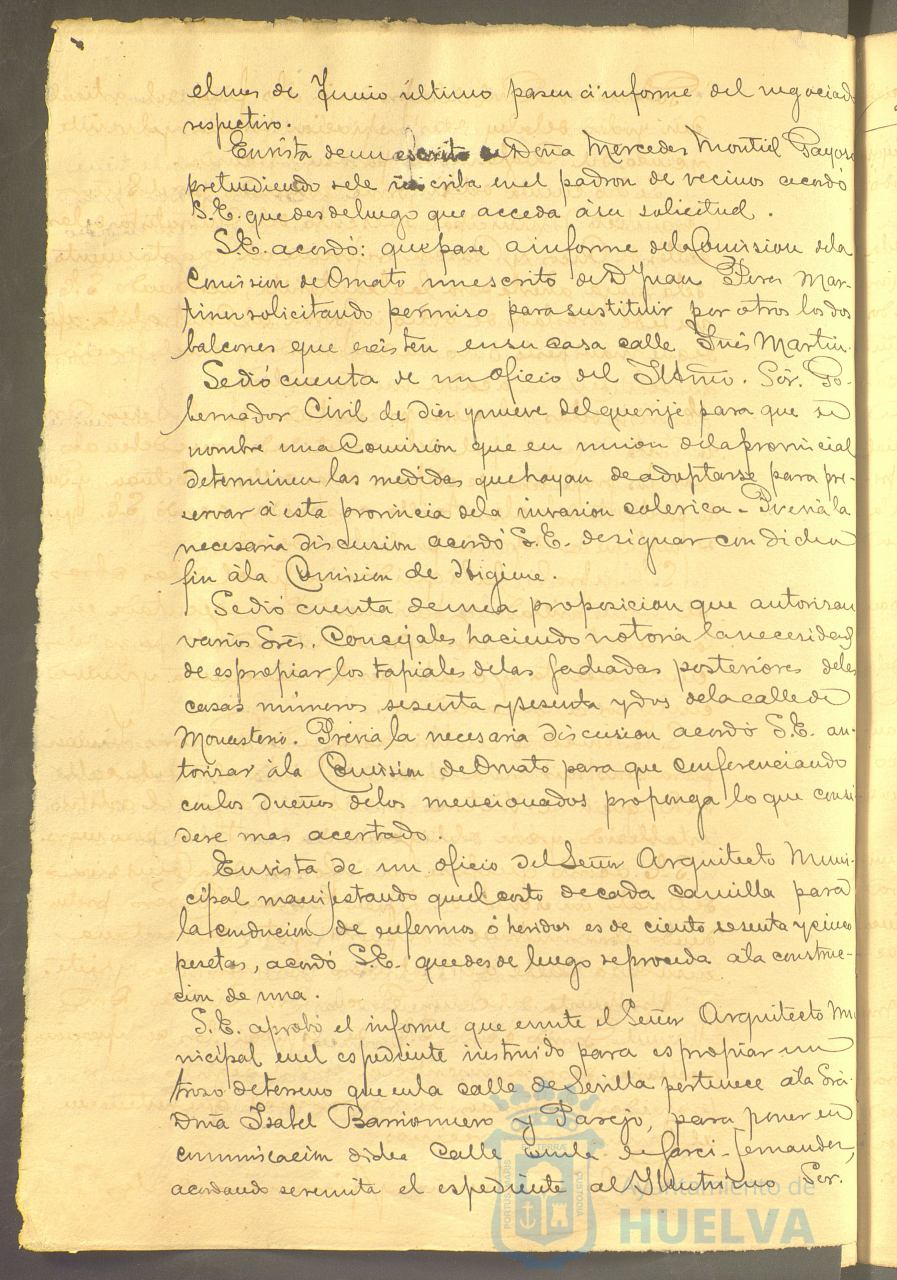 el mes de Junio último pasen á informe del negociado
respectivo.
En vista de un escrito de Doña Mercedes Montiel Payoso
pretendiendo se le inscriba en el padron de vecinos acordó
S.E. que desde luego que acceda á su solicitud.
S.E. acordó: que pase a informe de la Comision de la
Comision de Ornato un escrito de D. Juan Perez Mar-
tinez solicitando permiso para sustituir por otros los dos
balcones que existen en su casa calle Inés Martin.
Se dió cuenta de un oficio del Iltmo. Sor. Go-
bernador Civil de diez y nueve del que rije para que se
nombre una Comision que en union de la provincial
determinen las medidas que hayan de adoptarse para pre-
servar á esta provincia de la invasion colerica - Previa la
necesaria discusion acordó S.E. designar con dicho
fin á la Comision de Higiene.
Se dió cuenta de una proposicion que autorizan
varios Srēs. Concejales haciendo notoria la necesidad
de espropiar los tapiales de las fachadas posteriores de las
casas números sesenta y sesenta y dos de la calle de
Monasterio. Previa la necesaria discusion acordó S.E. au-
torizar á la Comision de Ornato para que conferenciando
con los dueños de los mencionados proponga lo que consi-
dere mas acertado.
En vista de un oficio del Señor Arquitecto Muni-
cipal manifestando que el costo de cada camilla para
la conducion de enfermos ó heridos es de ciento sesenta y cinco
pesetas, acordó S.E. que desde luego se proceda á la construc-
cion de una.
S.E. aprobó el informe que emite el Señor Arquitecto Mu-
nicipal en el espediente instruido para espropiar un
trozo de terreno que en la calle de Sevilla pertenece á la Sra.
Doña Isabel Barrionuevo y Parejo, para poner en
comunicacion dicha calle con la de Garci-Fernandez,
acordando se remita el espediente al Ilustrisimo Sor.
PORTUS MARIS
ET TERRÆ
CUSTODIA
Ayuntamiento de
HUELVA